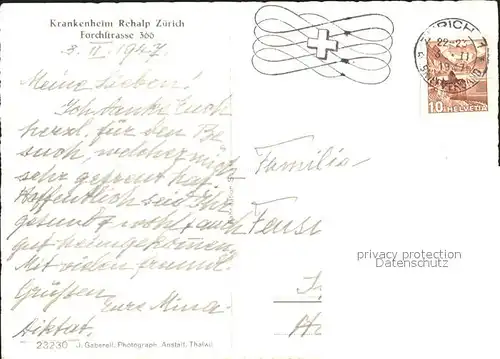 Krankenheim Rehalp Zürich
Forchstrasse 366
3. II. 1947
Meine Lieben!
Ich danke Euch
herzl. für den Be
such, welcher mich
sehr gefreut hat.
Hoffentlich seid Ihr
gesund & wohl & auch
gut heimgekommen.
Mit vielen freundl.
Grüssen
Eure Mina
diktat.
23230 J. Gaberell, Photograph. Anstalt, Thalwil
ZÜRICH 7
22-2
10 HELVETIA
Familie
privacy protection
Datenschutz